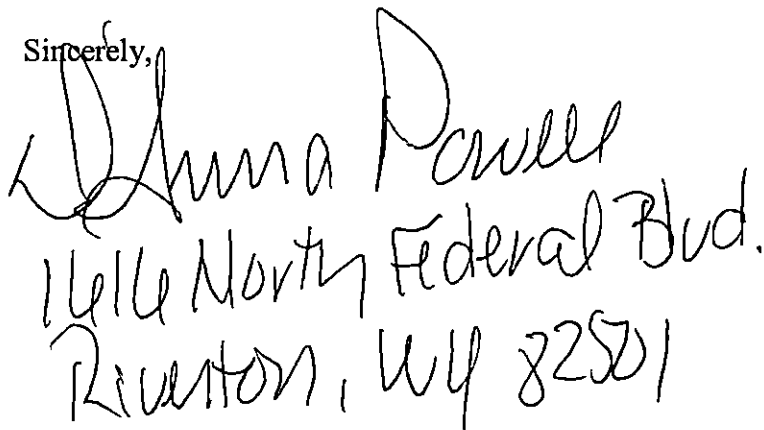 Sincerely,
DeAnna Powell
1616 North Federal Blvd.
Riverton, WY 82501